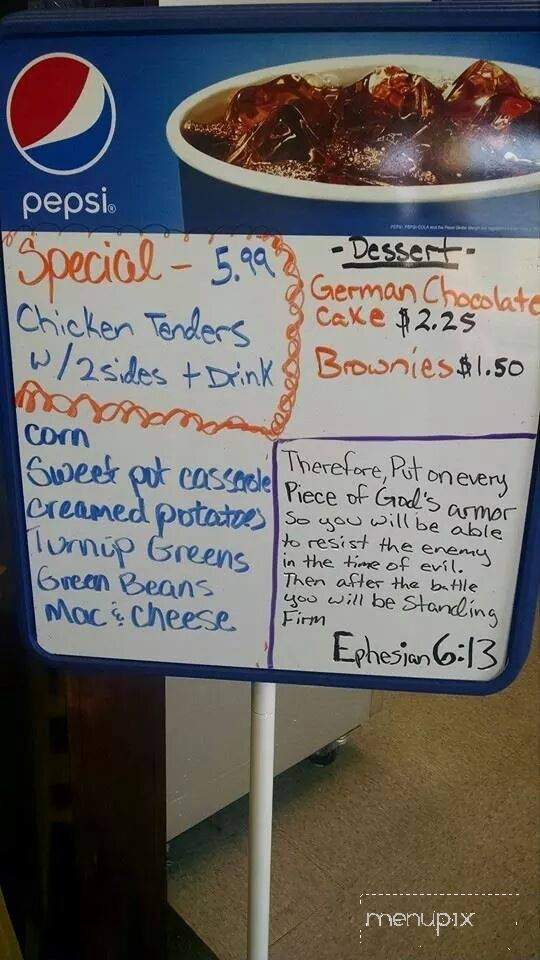 pepsi®
Special - 5.99
Chicken Tenders
w/2 sides + Drink
- Dessert -
German Chocolate
Cake $2.25
Brownies $1.50
corn
Sweet pot casserole
creamed potatoes
Turnip Greens
Green Beans
Mac & Cheese
Therefore, Put on every
Piece of God's armor
So you will be able
to resist the enemy
in the time of evil.
Then after the battle
you will be Standing
Firm
Ephesian 6:13
menupix